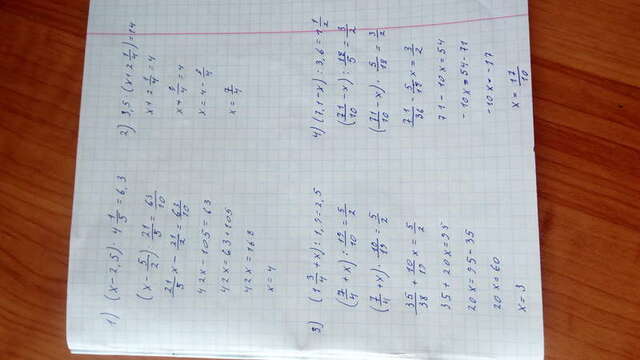 1) (x-2,5)·4 1/5=6,3
(x-5/2) 21/5=63/10
21/5 x-21/2=63/10
42x-105=63
42x=63+105
42x=168
x=4
2) 3,5·(x+2 1/4)=14
x+2 1/4=4
x+9/4=4
x=4-9/4
x=7/4
3) (1 3/4+x):1,9=2,5
(7/4+x):19/10=5/2
(7/4+x)·10/19=5/2
35/38+10/19 x=5/2
35+20x=95
20x=95-35
20x=60
x=3
4) (7,1-x):3,6=1 1/2
(71/10-x):18/5=3/2
(71/10-x)·5/18=3/2
71/36-5/18 x=3/2
71-10x=54
-10x=54-71
-10x=-17
x=17/10